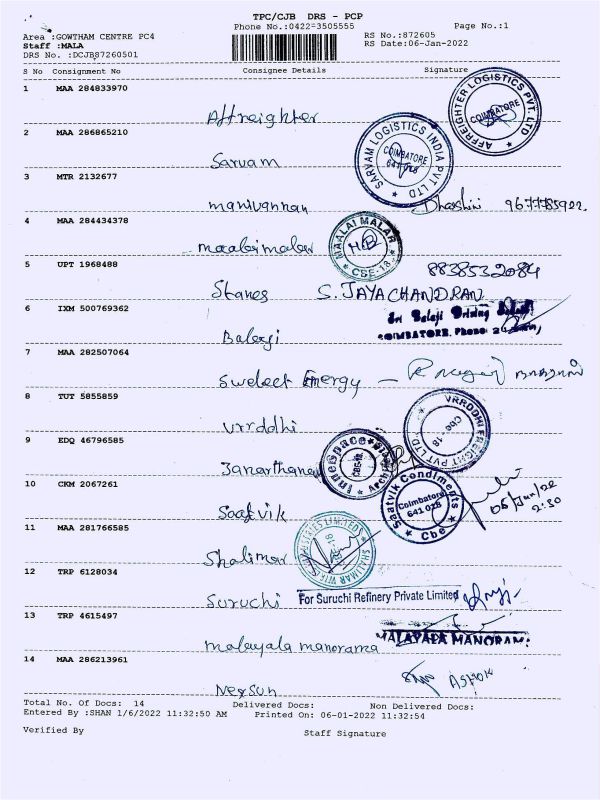 TPC/CJB DRS - PCP
Phone No.:0422-3505555 Page No.:1
Area :GOWTHAM CENTRE PC4 RS No.:872605
Staff :MALA RS Date:06-Jan-2022
DRS No. :DCJB87260501
S No Consignment No Consignee Details Signature
1 MAA 284833970 Affreighter
AFFREIGHTER LOGISTICS PVT. LTD COIMBATORE
2 MAA 286865210 Sarvam
SARVAM LOGISTICS INDIA PVT LTD COIMBATORE
3 MTR 2132677 manivannan Dharshini
4 MAA 284434378 maalaimalar
MAALAI MALAR CBE-18
5 UPT 1968488 Stanes S. JAYACHANDRAN 8838532084
6 IXM 500769362 Balaji
Sri Balaji Driving
COIMBATORE. Phone:
7 MAA 282507064 Sweleet Energy
8 TUT 5855859 Vrrddhi
VRRDDHI FREIGHT PVT LTD Cbe - 18
9 EDQ 46796585 Janarthanan
Innerspace
10 CKM 2067261 Saatvik
Saatvik Condiments Coimbatore 641 025 Cbe
2:30
11 MAA 281766585 Shalimar
SHALIMAR LIMITED
12 TRP 6128034 Suruchi For Suruchi Refinery Private Limited
13 TRP 4615497 malayala manorama MALAYALA MANORAMA
14 MAA 286213961 Nexsun ASHOK
Total No. Of Docs: 14 Delivered Docs: Non Delivered Docs:
Entered By :SHAN 1/6/2022 11:32:50 AM Printed On: 06-01-2022 11:32:54
Verified By Staff Signature